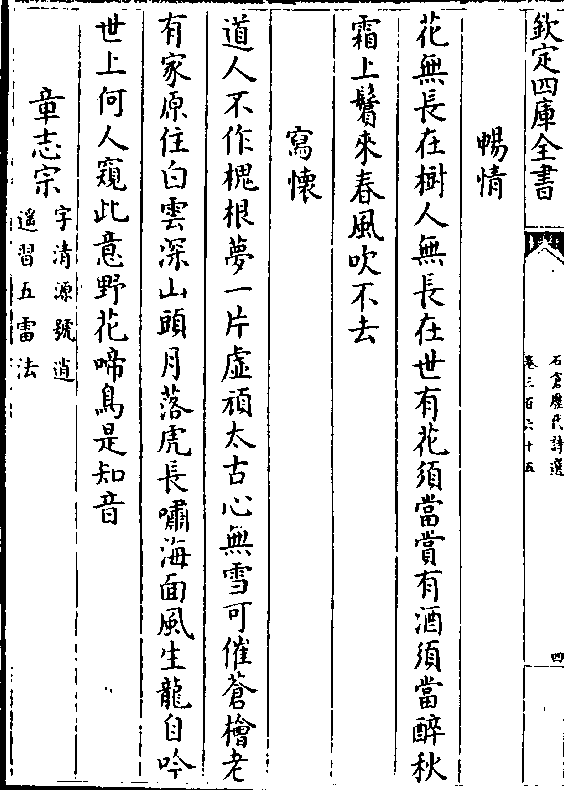 欽定四庫全書
石倉歷代詩選
卷三百六十五
四
暢情
花無長在樹人無長在世有花須當賞有酒須當醉秋
霜上鬢來春風吹不去
寫懷
道人不作槐根夢一片虛頑太古心無雪可催蒼檜老
有家原住白雲深山頭月落虎長嘯海面風生龍自吟
世上何人窺此意野花啼鳥是知音
章志宗
字清源號逍
遙習五雷法